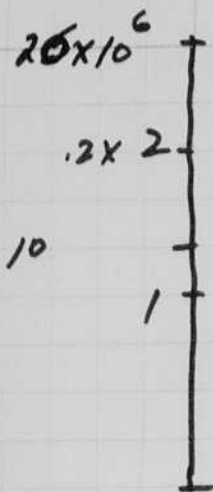 20x10⁶
.2x 2
10
1